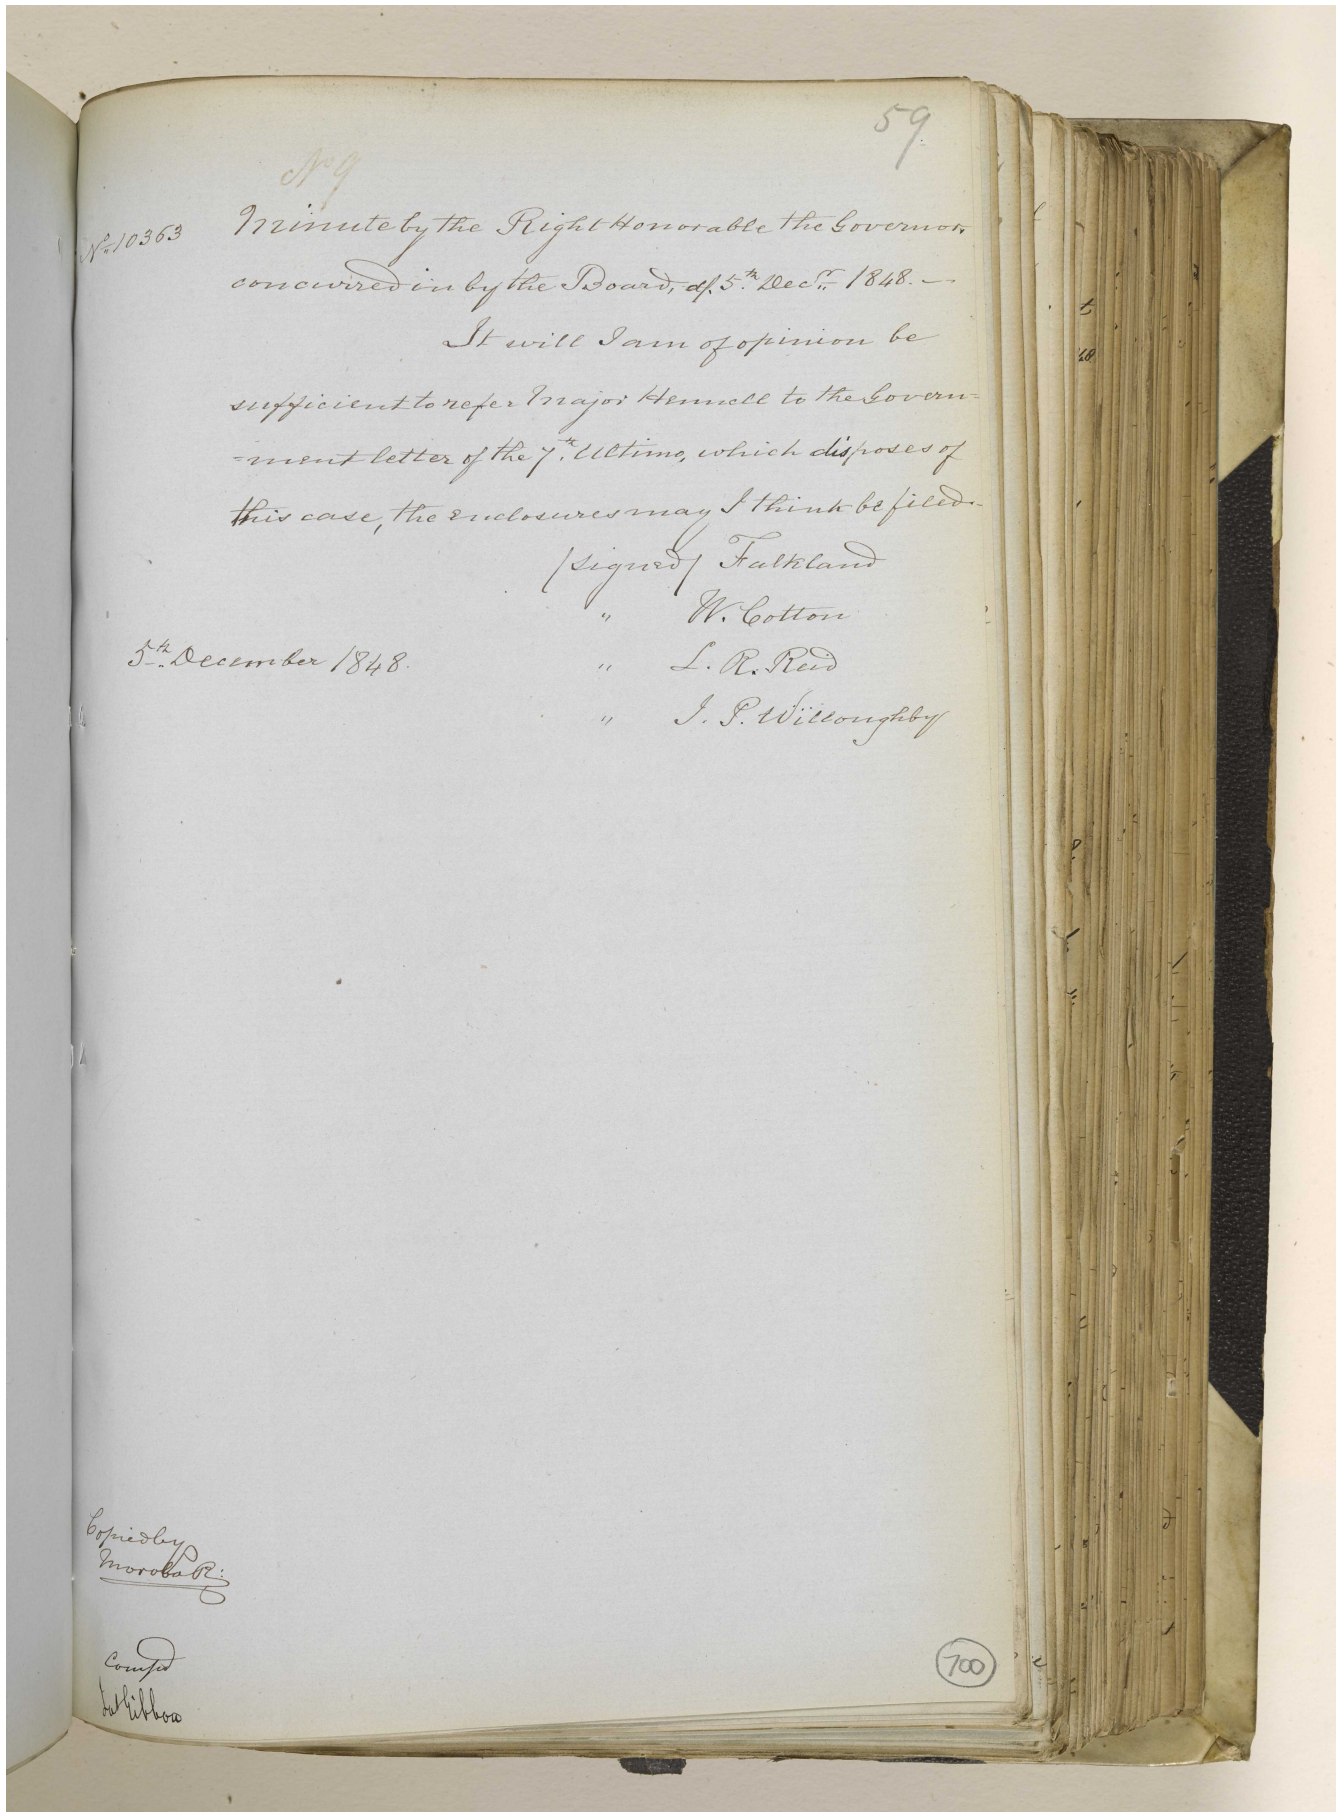 59
No 9
No. 10363
Minute by the Right Honorable the Governor,
concurred in by the Board, d/. 5th. Decr. 1848. —
It will I am of opinion be
sufficient to refer Major Hennell to the Govern=
=ment letter of the 7th. Ultimo, which disposes of
this case, the enclosures may I think be filed.
/signed/ Falkland
" W. Cotton
5th. December 1848. " L. R. Reid
" J. P. Willoughby
Copied by
Moroba R:
Compd
700